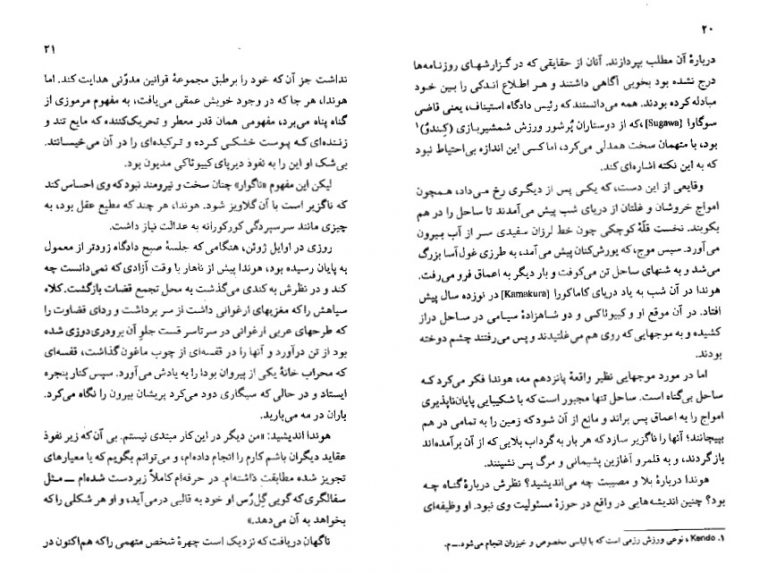 ۲۰
دربارهٔ آن مطلب بپردازند. آنان از حقایقی که در گزارشهای روزنامه‌ها
درج نشده بود بخوبی آگاهی داشتند و هر اطلاع اندکی را بین خود
مبادله کرده بودند. همه می‌دانستند که رئیس دادگاه استیناف، یعنی قاضی
سوگاوا [Sugawa]، که از دوستاران پُرشور ورزش شمشیربازی (کِندو)۱
بود، با متهمان سخت همدلی می‌کرد، اما کسی این اندازه بی‌احتیاط نبود
که به این نکته اشاره‌ای کند.
وقایعی از این دست، که یکی پس از دیگری رخ می‌داد، همچون
امواج خروشان و غلتان از دریای شب پیش می‌آمدند تا ساحل را در هم
بکوبند. نخست قلّهٔ کوچکی چون خط لرزان سفیدی سر از آب بیرون
می‌آورد. سپس موج، که یورش‌کنان پیش می‌آمد، به طرزی غول‌آسا بزرگ
می‌شد و به شنهای ساحل تن می‌کوفت و بار دیگر به اعماق فرو می‌رفت.
هوندا در آن شب به یاد دریای کاماکورا [Kamakura] در نوزده سال پیش
افتاد. در آن موقع او و کیوئاکی و دو شاهزادهٔ سیامی در ساحل دراز
کشیده و به موجهایی که روی هم می‌غلتیدند و پس می‌رفتند چشم دوخته
بودند.
اما در مورد موجهایی نظیر واقعهٔ پانزدهم مه، هوندا فکر می‌کرد که
ساحل بی‌گناه است. ساحل تنها مجبور است که با شکیبایی پایان‌ناپذیری
امواج را به اعماق پس براند و مانع از آن شود که زمین را به تمامی در هم
بپیچانند؛ آنها را ناگزیر سازد که هر بار به گرداب بلایی که از آن برآمده‌اند
بازگردند، و به قلمرو آغازین پشیمانی و مرگ پس نشینند.
هوندا دربارهٔ بلا و مصیبت چه می‌اندیشید؟ نظرش دربارهٔ گناه چه
بود؟ چنین اندیشه‌هایی در واقع در حوزهٔ مسئولیت وی نبود. او وظیفه‌ای
۱. Kendo، نوعی ورزش رزمی است که با لباسی مخصوص و خیزران انجام می‌شود.ــ م.
۲۱
نداشت جز آن که خود را برطبق مجموعهٔ قوانین مدوّنی هدایت کند. اما
هوندا، هر جا که در وجود خویش عمقی می‌یافت، به مفهوم مرموزی از
گناه پناه می‌برد، مفهومی همان قدر معطر و تحریک‌کننده که مایع تند و
زننده‌ای که پوست خشکی کرده و ترکیده‌ای را در آن می‌خیسانند.
بی‌شک او این را به نفوذ دیرپای کیوئاکی مدیون بود.
لیکن این مفهوم «ناگوار» چنان سخت و نیرومند نبود که وی احساس کند
که ناگزیر است با آن گلاویز شود. هوندا، هر چند که مطیع عقل بود، به
چیزی مانند سرسپردگی کورکورانه به عدالت نیاز داشت.
روزی در اوایل ژوئن، هنگامی که جلسهٔ صبح دادگاه زودتر از معمول
به پایان رسیده بود، هوندا پیش از ناهار با وقت آزادی که نمی‌دانست چه
کند و در نظرش به کندی می‌گذشت به محل تجمع قضات بازگشت. کلاه
سیاهش را که مغزیهای ارغوانی داشت از سر برداشت و ردای قضاوت را
که طرحهای عربی ارغوانی در سرتاسر قسمت جلو آن برودری‌دوزی شده
بود از تن درآورد و آنها را در قفسه‌ای از چوب ماغون گذاشت، قفسه‌ای
که محراب خانهٔ یکی از پیروان بودا را به یادش می‌آورد. سپس کنار پنجره
ایستاد و در حالی که سیگاری دود می‌کرد پریشان بیرون را نگاه می‌کرد.
باران در مه می‌بارید.
هوندا اندیشید: «من دیگر در این کار مبتدی نیستم. بی آن که زیر نفوذ
عقاید دیگران باشم کارم را انجام داده‌ام، و می‌توانم بگویم که با معیارهای
تجویز شده مطابقت داشته‌ام. در حرفه‌ام کاملاً زبردست شده‌ام ــ مثل
سفالگری که گویی گِل رُس او خود به قالبی درمی‌آید، و او هر شکلی را که
بخواهد به آن می‌دهد.»
ناگهان دریافت که نزدیک است چهرهٔ شخص متهمی را که هم‌اکنون در